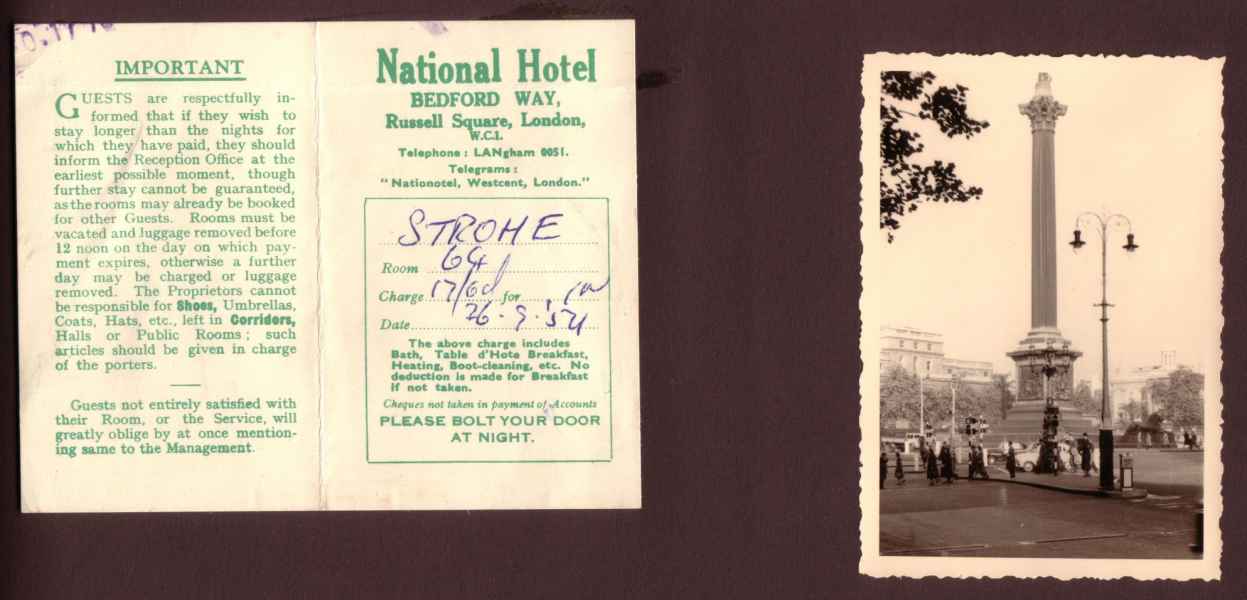 IMPORTANT
GUESTS are respectfully in-
formed that if they wish to
stay longer than the nights for
which they have paid, they should
inform the Reception Office at the
earliest possible moment, though
further stay cannot be guaranteed,
as the rooms may already be booked
for other Guests. Rooms must be
vacated and luggage removed before
12 noon on the day on which pay-
ment expires, otherwise a further
day may be charged or luggage
removed. The Proprietors cannot
be responsible for Shoes, Umbrellas,
Coats, Hats, etc., left in Corridors,
Halls or Public Rooms; such
articles should be given in charge
of the porters.
Guests not entirely satisfied with
their Room, or the Service, will
greatly oblige by at once mention-
ing same to the Management.
National Hotel
BEDFORD WAY,
Russell Square, London,
W.C.1.
Telephone: LANgham 0051.
Telegrams:
"Nationotel, Westcent, London."
STROHE
Room
Charge 17/6d for
Date 26.9.54
The above charge includes
Bath, Table d'Hote Breakfast,
Heating, Boot-cleaning, etc. No
deduction is made for Breakfast
if not taken.
Cheques not taken in payment of Accounts
PLEASE BOLT YOUR DOOR
AT NIGHT.